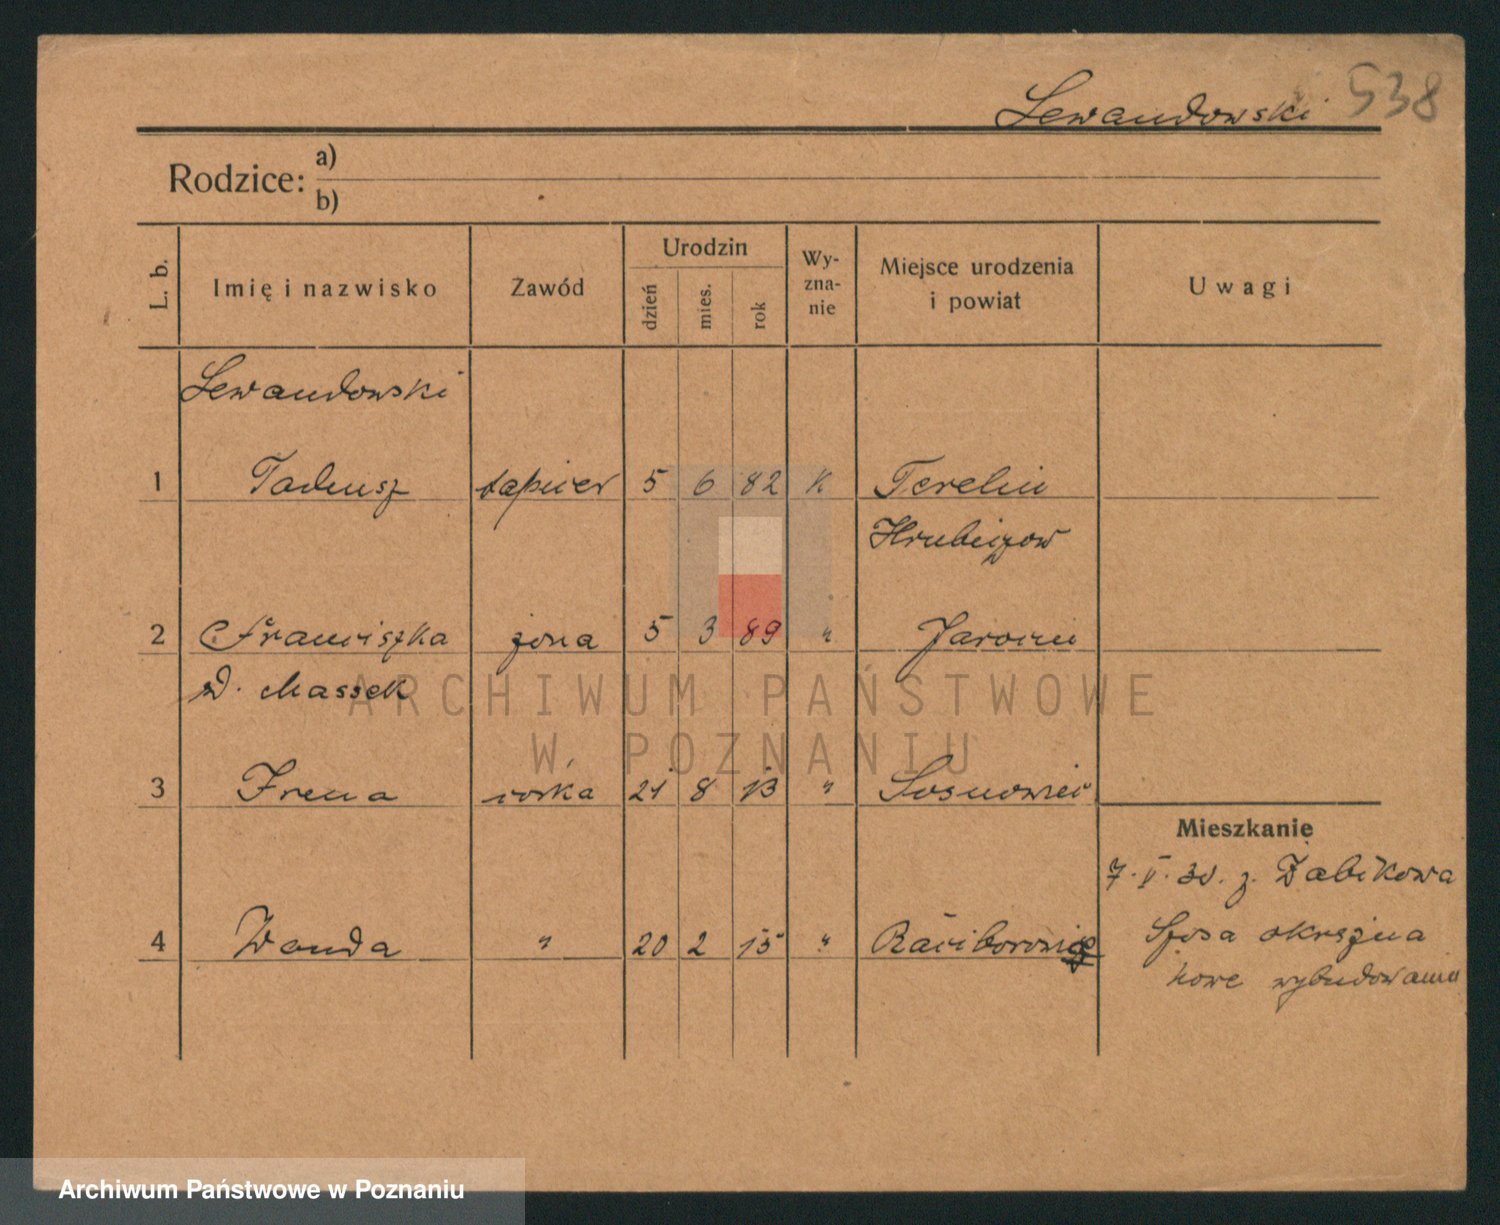 538
Lewandowski
Rodzice: a)
b)
L. b. Imię i nazwisko Zawód Urodzin dzień mies. rok Wy-zna-nie Miejsce urodzenia i powiat Uwagi
Lewandowski
1 Tadeusz tapicer 5 6 82 K Terelin
Hrubieszow
2 Franciszka żona 5 3 89 " Jarocin
z d. Massek
3 Irena córka 21 8 13 " Sosnowiec
Mieszkanie
7. V. 30. z. Żabikowa
4 Wanda " 20 2 15 " Raciborowice
Szosa okrężna
nowe wybudowanie
ARCHIWUM PAŃSTWOWE
W POZNANIU
Archiwum Państwowe w Poznaniu